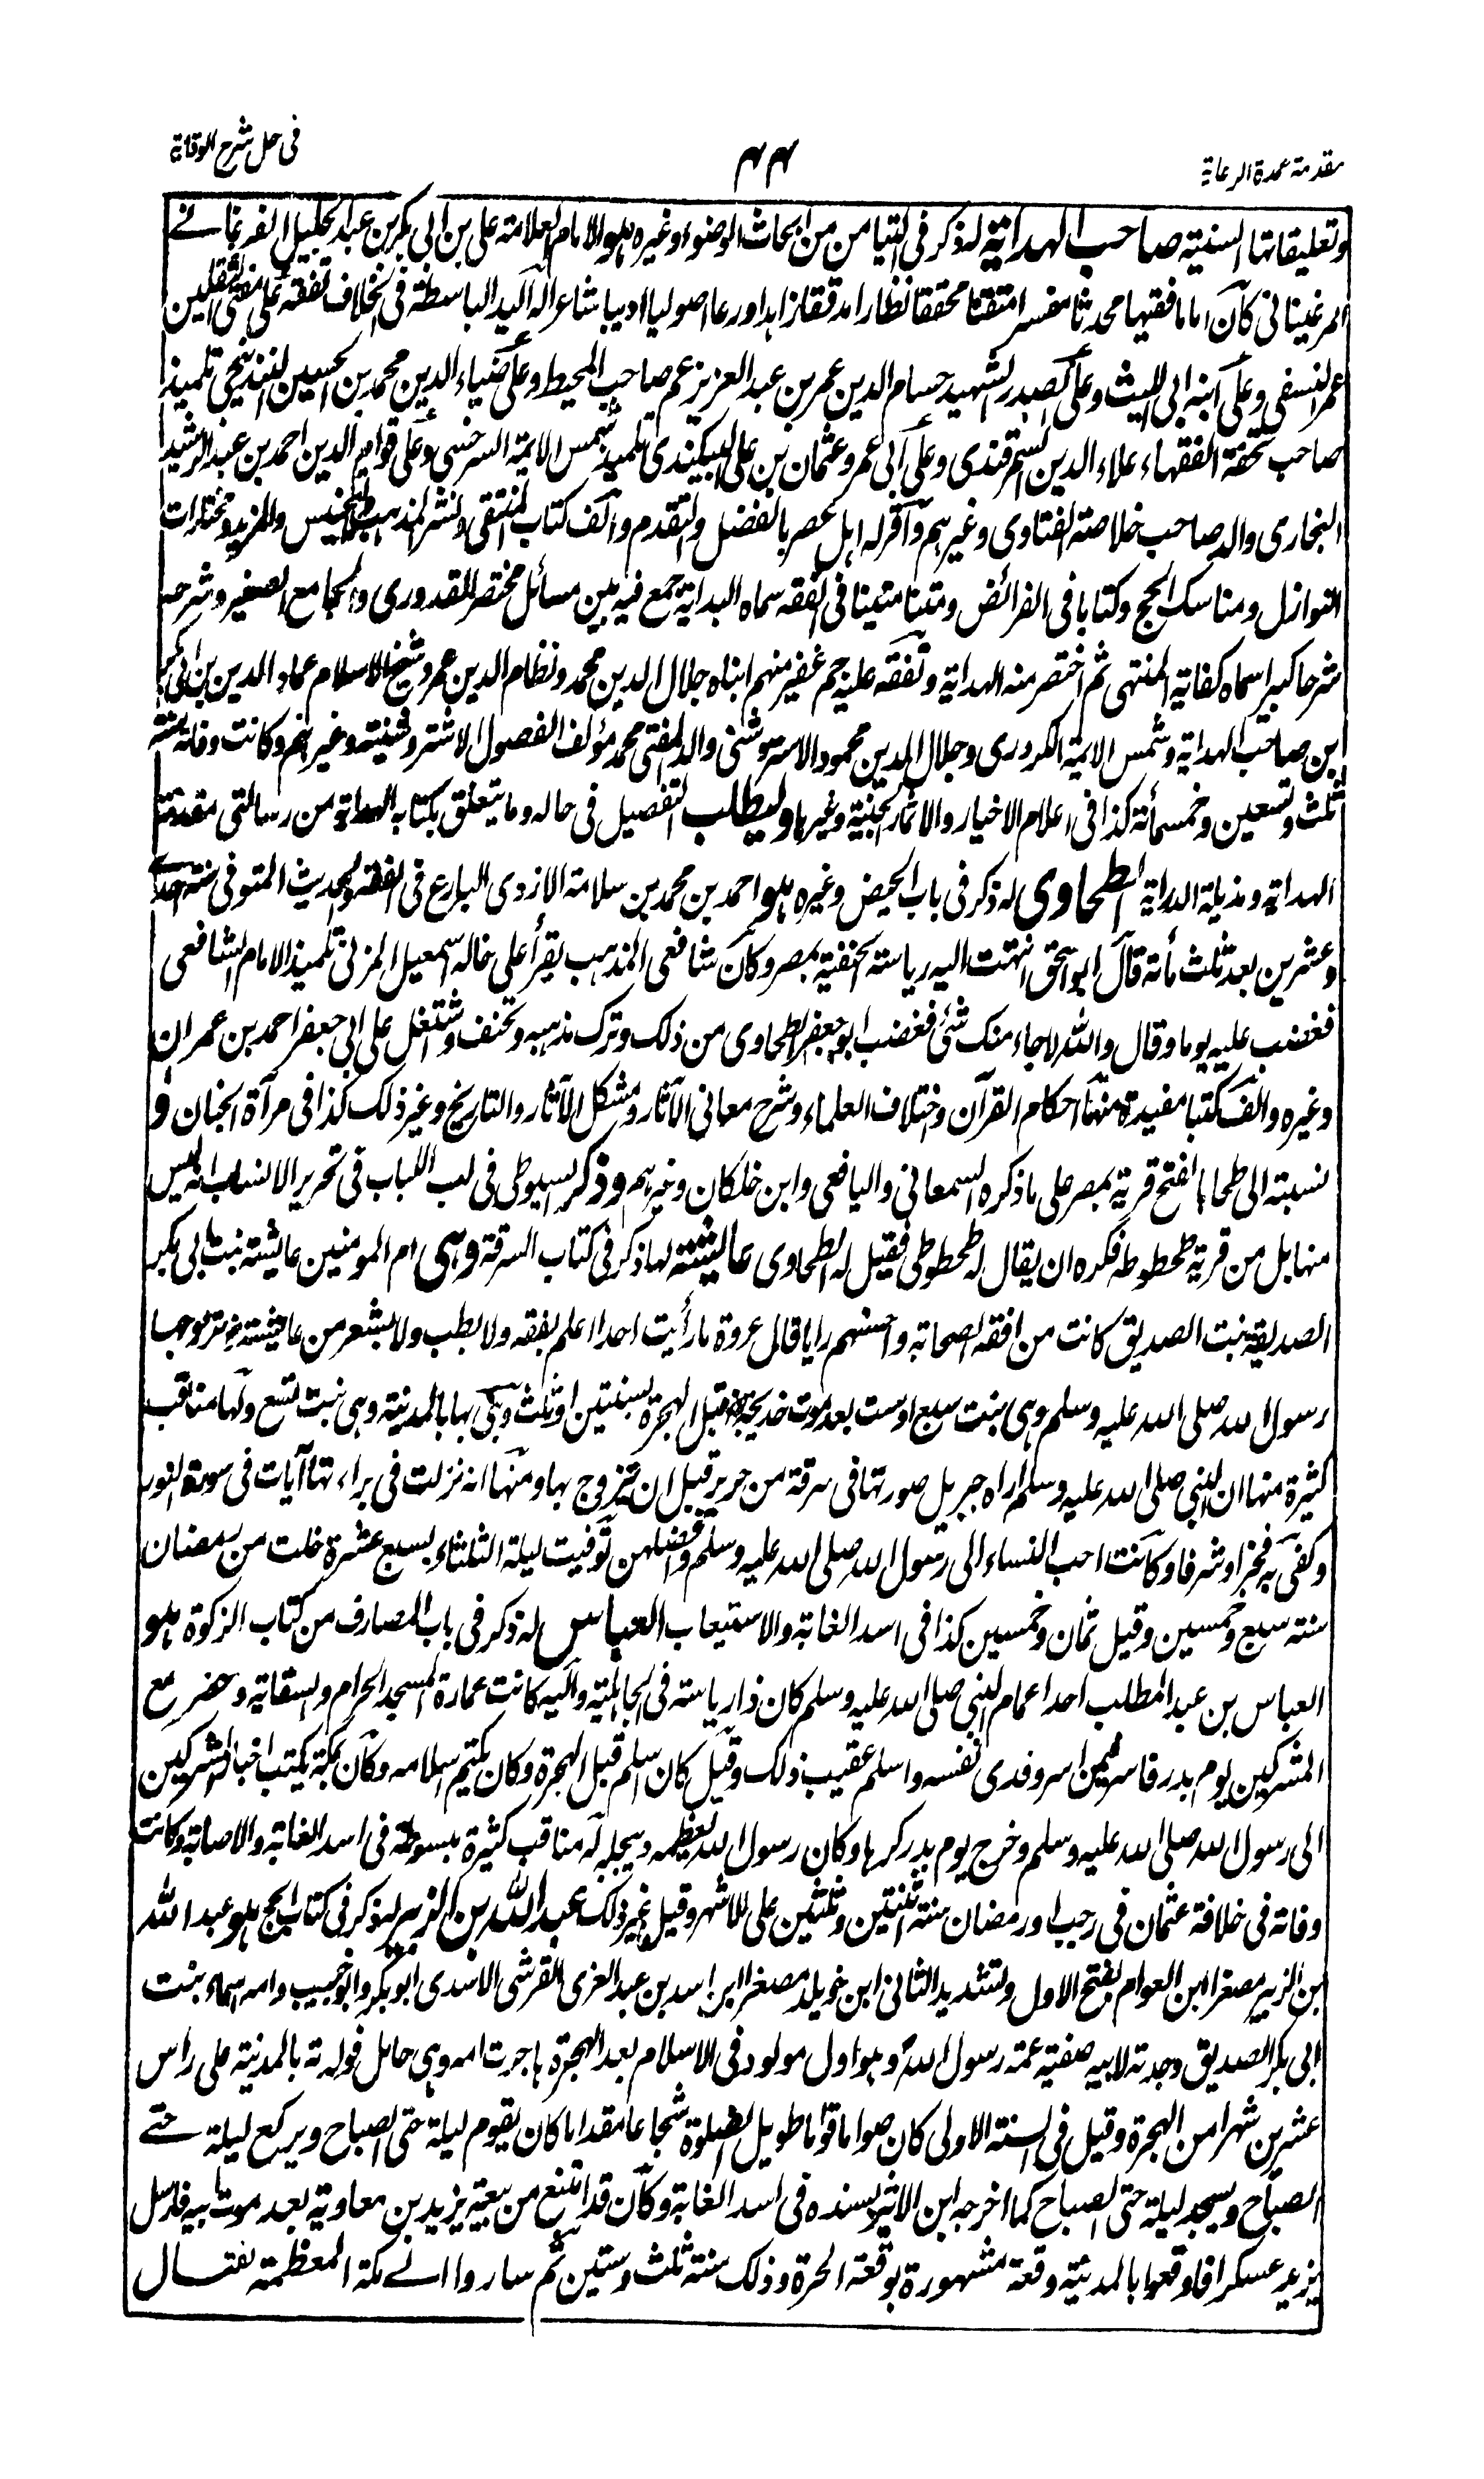 مقدمة عمدة الرعاية
٤٤
فى حل شرح الوقاية
وتعليقاتها السنية صاحب الهداية له ذكر فى التيامن من ابحاث الوضوء وغيره هو الامام العلامة على بن ابى بكر بن عبد الجليل الفرغانے
المرغينانى كان اماما فقيها محدثا مفسرا متقنا محققا نظارا مدققا زاهدا ورعا اصوليا اديبا شاعرا له اليد الباسطة فى الخلاف تفقه على مفتى الثقلين
عمر النسفى وعلى ابنه ابى الليث وعلى الصدر الشهيد حسام الدين عمر بن عبد العزيز عم صاحب المحيط وعلى ضياء الدين محمد بن الحسين البندنيجى تلميذ
صاحب تحفة الفقهاء علاء الدين السمرقندى وعلى ابى عمرو عثمان بن على البيكندى تلميذ شمس الايمة السرخسى وعلى قوام الدين احمد بن عبد الرشيد
البخارى والد صاحب خلاصة الفتاوى وغيرهم واقر له اهل عصره بالفضل والتقدم والف كتاب المنتقى ونشر المذهب والتجنيس والمزيد ومختارات
النوازل ومناسك الحج وكتابا فى الفرائض ومتنا متينا فى الفقه سماه البداية جمع فيه بين مسائل مختصر القدورى والجامع الصغير وشرحه
شرحا كبيرا سماه كفاية المنتهى ثم اختصر منه الهداية وتفقه عليه جم غفير منهم ابناه جلال الدين محمد ونظام الدين عمر وشيخ الاسلام عماد الدين بن ابى بكر
ابن صاحب الهداية وشمس الايمة الكردرى وجلال الدين محمود الاستروشنى والد المفتى محمد مؤلف الفصول الاشتروشنية وغيرهم وكانت وفاته سنة
ثلث وتسعين وخمسمائة كذا فى اعلام الاخيار والاثمار الجنية وغيرها وليطلب التفصيل فى حاله وما يتعلق بكتابه الهداية من رسالتى مقدمة
الهداية ومذيلة الدراية الطحاوى له ذكر فى باب الحيض وغيره هو احمد بن محمد بن سلامة الازدى البارع فى الفقه والحديث المتوفى سنة احدے
وعشرين بعد ثلث مأتة قال ابو اسحق انتهت اليه رياسة الحنفية بمصر وكان شافعى المذهب يقرأ على خاله اسمعيل المزنى تلميذ الامام الشافعى
فغضب عليه يوما وقال والله لا جاء منك شئ فغضب ابو جعفر الطحاوى من ذلك وترك مذهبه وتحنف واشتغل على ابى جعفر احمد بن عمران
وغيره والف كتبا مفيدة منها احكام القرآن واختلاف العلماء وشرح معانى الآثار ومشكل الآثار والتاريخ وغير ذلك كذا فى مرآة الجنان و
نسبته الى طحا بالفتح قرية بمصر على ما ذكره السمعانى واليافعى وابن خلكان وغيرهم وذكر السيوطى فى لب اللباب فى تحرير الانساب انه ليس
منها بل من قرية طحطوطة فكره ان يقال له طحطوطى فقيل له الطحاوى عائيشة لها ذكر فى كتاب السرقة وهى ام المومنين عايشة بنت ابى بكر
الصديقة بنت الصديق كانت من افقه الصحابة واحسنهم رايا قال عروة ما رأيت احدا اعلم بفقه ولا بطب ولا بشعر من عايشة رض تزوجها
رسول الله صلى الله عليه وسلم وهى بنت سبع او ست بعد موت خديجة رض قبل الهجرة بسنتين او ثلث وبنى بها بالمدينة وهى بنت تسع ولها مناقب
كثيرة منها ان النبى صلى الله عليه وسلم اراه جبريل صورتها فى سرقة من حرير قبل ان يتزوج بها ومنها انه نزلت فى براءتها آيات فى سورة النور
وكفى به فخرا وشرفا وكانت احب النساء الى رسول الله صلى الله عليه وسلم وافضلهن توفيت ليلة الثلثاء بسبع عشرة خلت من رمضان
سنة سبع وخمسين وقيل ثمان وخمسين كذا فى اسد الغابة والاستيعاب العباس له ذكر فى باب المصارف من كتاب الزكوة هو
العباس بن عبد المطلب احد اعمام النبى صلى الله عليه وسلم كان ذا رياسة فى الجاهلية واليه كانت عمارة المسجد الحرام والسقاية وحضر مع
المشركين يوم بدر فاسر فيمن اسر وفدى نفسه واسلم عقيب ذلك وقيل كان اسلم قبل الهجرة وكان يكتم اسلامه وكان بمكة يكتب اخبار المشركين
الى رسول الله صلى الله عليه وسلم وخرج يوم بدر كرها وكان رسول الله يعظمه ويبجله له مناقب كثيرة مبسوطة فى اسد الغابة والاصابة وكانت
وفاته فى خلافة عثمان فى رجب او رمضان سنة اثنتين وثلثين على الاشهر وقيل غير ذلك عبد الله بن الزبير له ذكر فى كتاب الحج هو عبد الله
بن الزبير مصغرا ابن العوام بفتح الاول وتشديد الثانى ابن خويلد مصغرا ابن اسد بن عبد العزى القرشى الاسدى ابو بكر وابو خبيب وامه اسماء بنت
ابى بكر الصديق وجدته لابيه صفية عمة رسول الله وهو اول مولود فى الاسلام بعد الهجرة هاجرت امه وهى حامل فولدته بالمدينة على راس
عشرين شهرا من الهجرة وقيل فى السنة الاولى كان صواما قواما طويل الصلوة شجاعا مقداما كان يقوم ليلة حتى الصباح ويركع ليلة حتے
الصباح ويسجد ليلة حتى الصباح كما اخرجه ابن الاثير بسنده فى اسد الغابة وكان قد امتنع من بيعة يزيد بن معاوية بعد موت ابيه فارسل
يزيد عسكرا فاوقعوا بالمدينة وقعة مشهورة بوقعة الحرة وذلك سنة ثلث وستين ثم ساروا الے مكة المعظمة بقتال